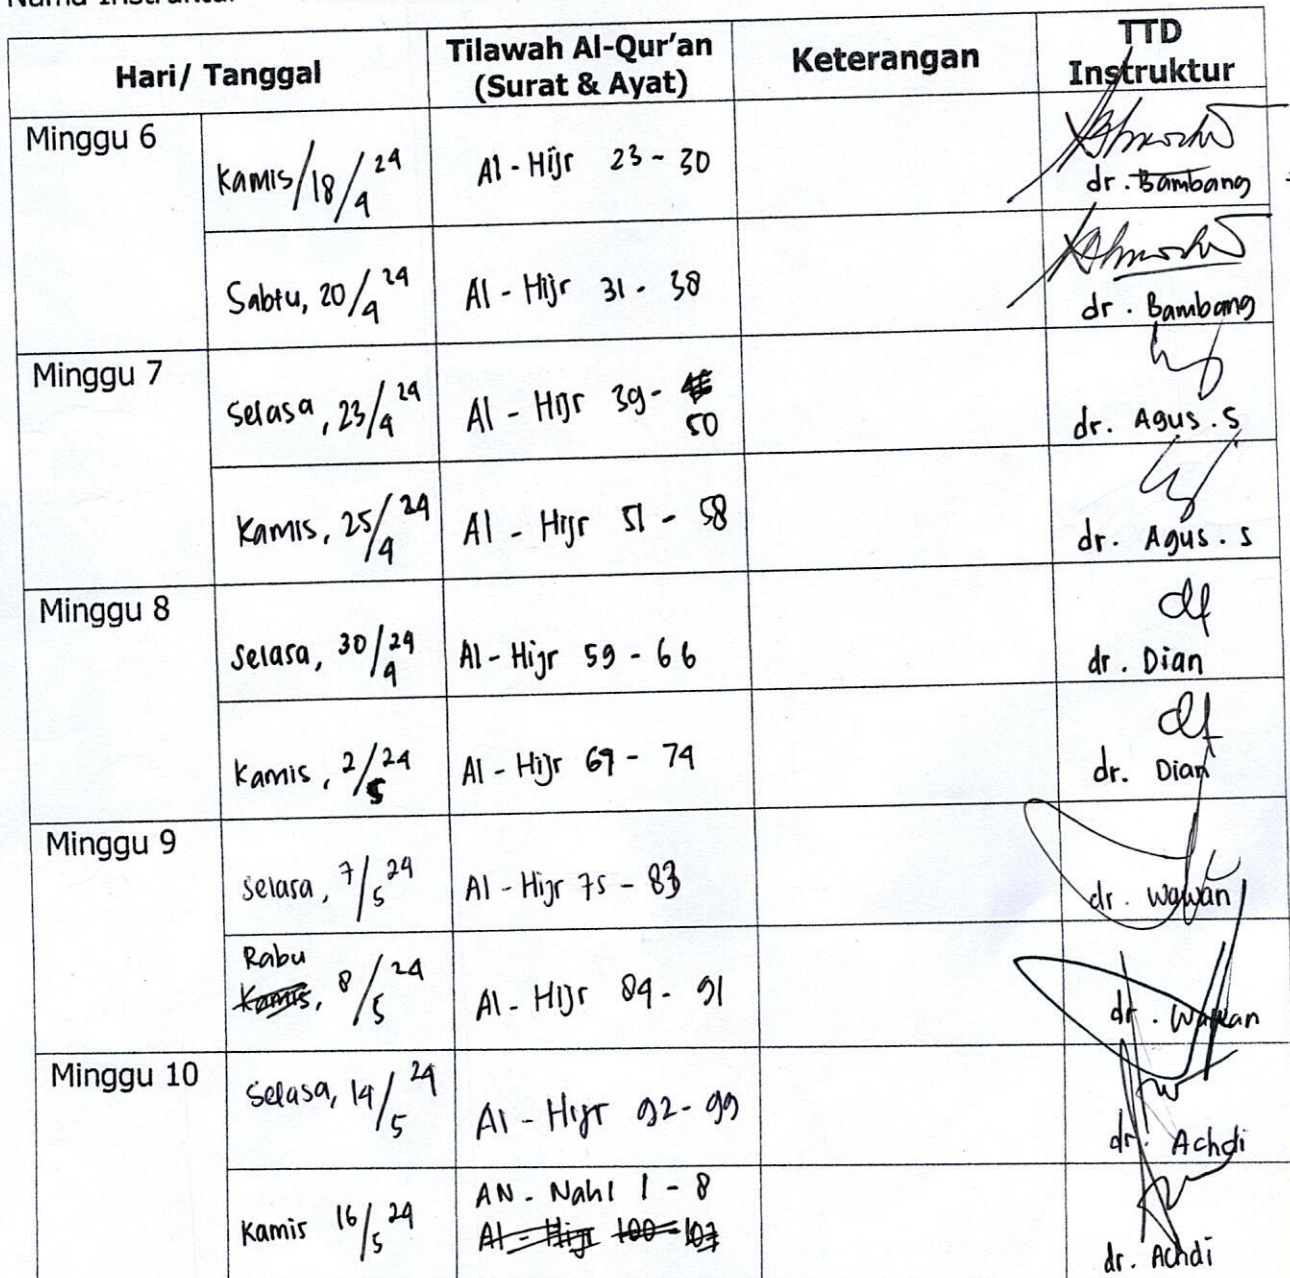 Nama Instruktur
Hari/ Tanggal
Tilawah Al-Qur'an
(Surat & Ayat)
Keterangan
TTD
Instruktur
Minggu 6
Kamis/18/4 24
Al - Hijr 23 - 30
dr. Bambang
Sabtu, 20/4 24
Al - Hijr 31 - 38
dr. Bambang
Minggu 7
Selasa, 23/4 24
Al - Hijr 39 -
50
dr. Agus. S
Kamis, 25/4 24
Al - Hijr 51 - 58
dr. Agus. S
Minggu 8
Selasa, 30/4 24
Al - Hijr 59 - 66
dr. Dian
Kamis, 2/5 24
Al - Hijr 67 - 74
dr. Dian
Minggu 9
Selasa, 7/5 24
Al - Hijr 75 - 83
dr. Wawan
Rabu
Kamis, 8/5 24
Al - Hijr 84 - 91
dr. Wawan
Minggu 10
Selasa, 14/5 24
Al - Hijr 92 - 99
dr. Achdi
Kamis 16/5 24
AN - Nahl 1 - 8
Al - Hijr 100 - 107
dr. Achdi